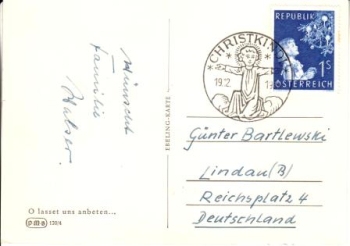 Wünscht
Familie
O lasset uns anbeten...,
pag 159/4
EBELING-KARTE
CHRISTKINDL
19.2.
REPUBLIK
1S
ÖSTERREICH
Günter Bartlewski
Lindau (B)
Reichsplatz 4
Deutschland